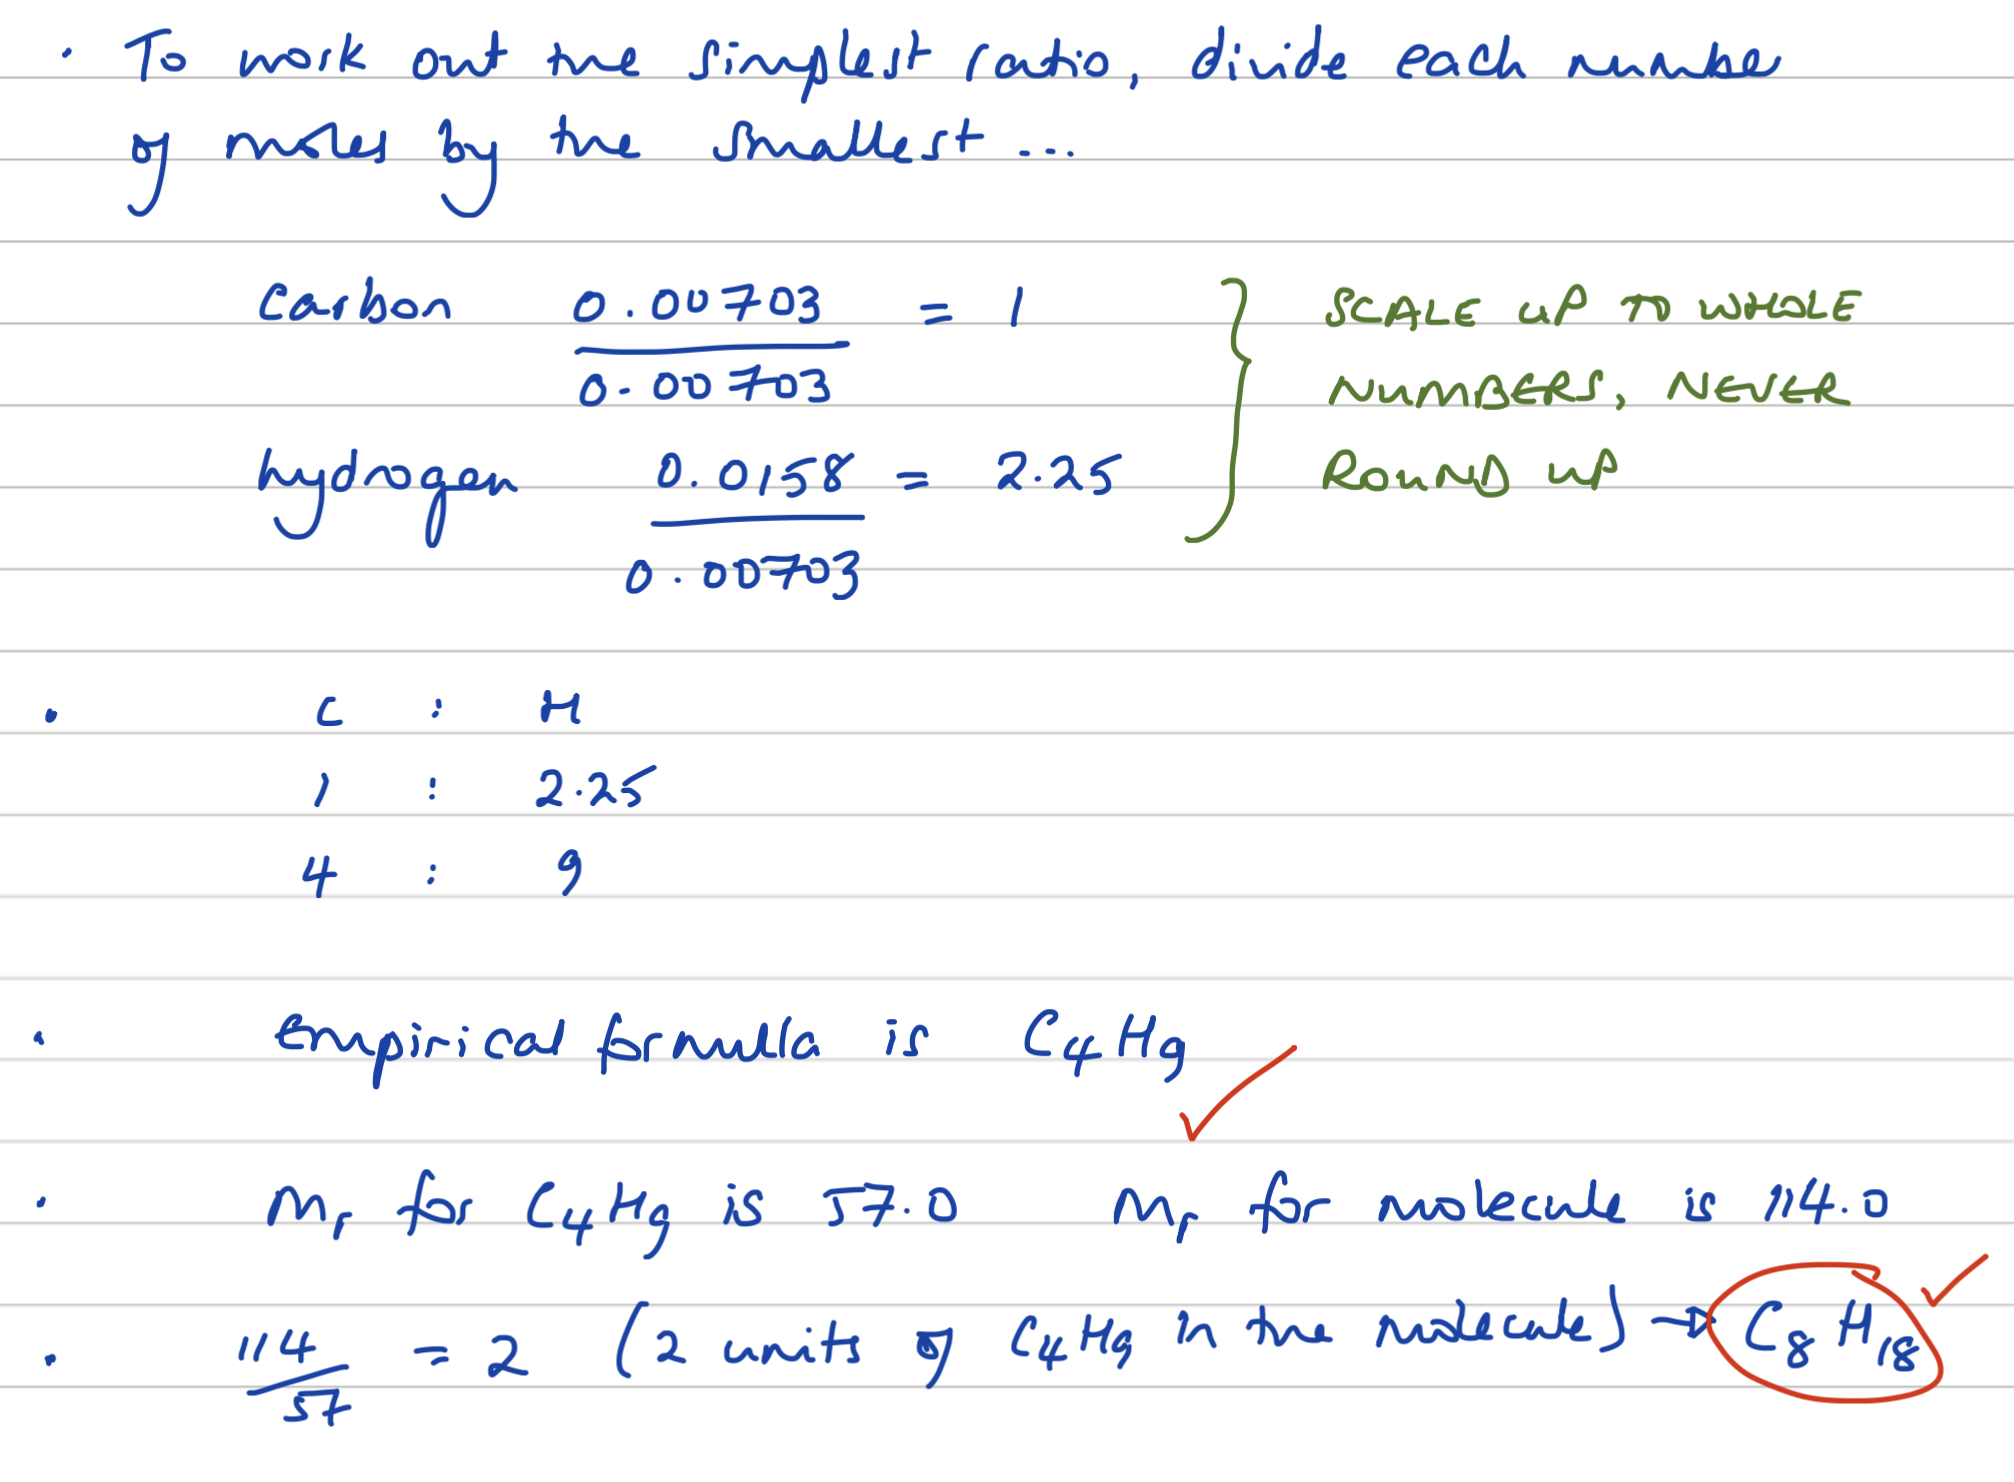 · To work out the simplest ratio, divide each number
of moles by the smallest ...
carbon 0.00703 = 1 SCALE UP TO WHOLE
0.00703 NUMBERS, NEVER
hydrogen 0.0158 = 2.25 ROUND UP
0.00703
· C : H
1 : 2.25
4 : 9
· Empirical formula is C₄H₉
· Mr for C₄H₉ is 57.0 Mr for molecule is 114.0
· 114 = 2 (2 units of C₄H₉ in the molecule) → C₈H₁₈
57